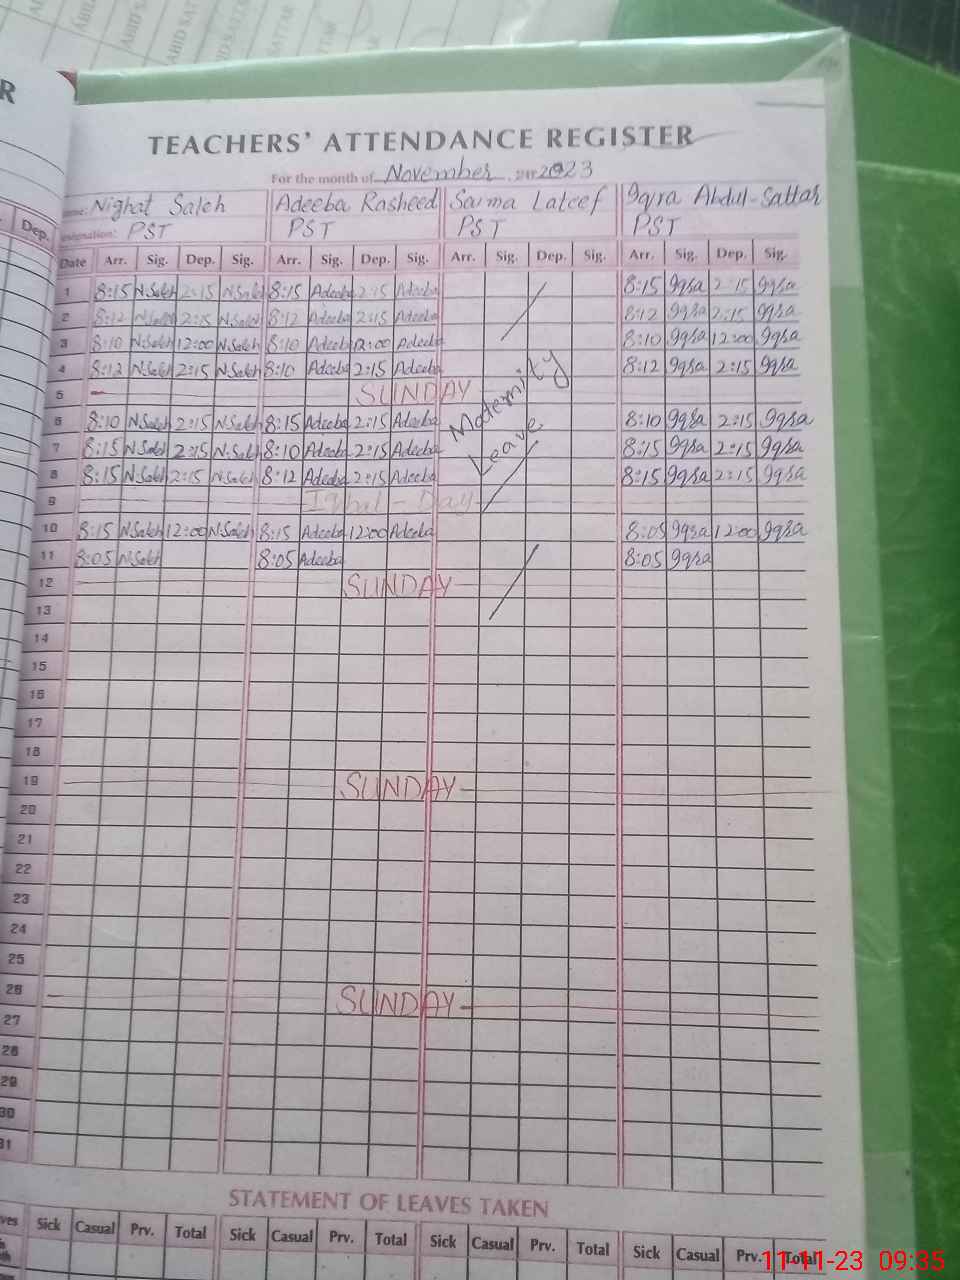 ABID SAT
ABID SAT
ABID SATTAR
SATTAR
R
TEACHERS' ATTENDANCE REGISTER
For the month of November, 2023
Nighat Saleh Adeeba Rasheed Saima Lateef Iqra Abdul-Sattar
Designation: PST PST PST PST
Dep.
Date Arr. Sig. Dep. Sig. Arr. Sig. Dep. Sig. Arr. Sig. Dep. Sig. Arr. Sig. Dep. Sig.
1 8:15 N.Saleh 2:15 N.Saleh 8:15 Adeeba 2:15 Adeeba 8:15 Iqra 2:15 Iqra
2 8:12 N.Saleh 2:15 N.Saleh 8:12 Adeeba 2:15 Adeeba 8:12 Iqra 2:15 Iqra
3 8:10 N.Saleh 12:00 N.Saleh 8:10 Adeeba 12:00 Adeeba 8:10 Iqra 12:00 Iqra
4 8:12 N.Saleh 2:15 N.Saleh 8:10 Adeeba 2:15 Adeeba 8:12 Iqra 2:15 Iqra
5 SUNDAY
Maternity
Leave
6 8:10 N.Saleh 2:15 N.Saleh 8:15 Adeeba 2:15 Adeeba 8:10 Iqra 2:15 Iqra
7 8:15 N.Saleh 2:15 N.Saleh 8:10 Adeeba 2:15 Adeeba 8:15 Iqra 2:15 Iqra
8 8:15 N.Saleh 2:15 N.Saleh 8:12 Adeeba 2:15 Adeeba 8:15 Iqra 2:15 Iqra
9 Iqbal - Day
10 8:15 N.Saleh 12:00 N.Saleh 8:15 Adeeba 12:00 Adeeba 8:05 Iqra 12:00 Iqra
11 8:05 N.Saleh 8:05 Adeeba 8:05 Iqra
12 SUNDAY
13
14
15
16
17
18
19 SUNDAY
20
21
22
23
24
25
26 SUNDAY
27
28
29
30
31
STATEMENT OF LEAVES TAKEN
Sick Casual Prv. Total Sick Casual Prv. Total Sick Casual Prv. Total Sick Casual Prv. Total
11-11-23 09:35